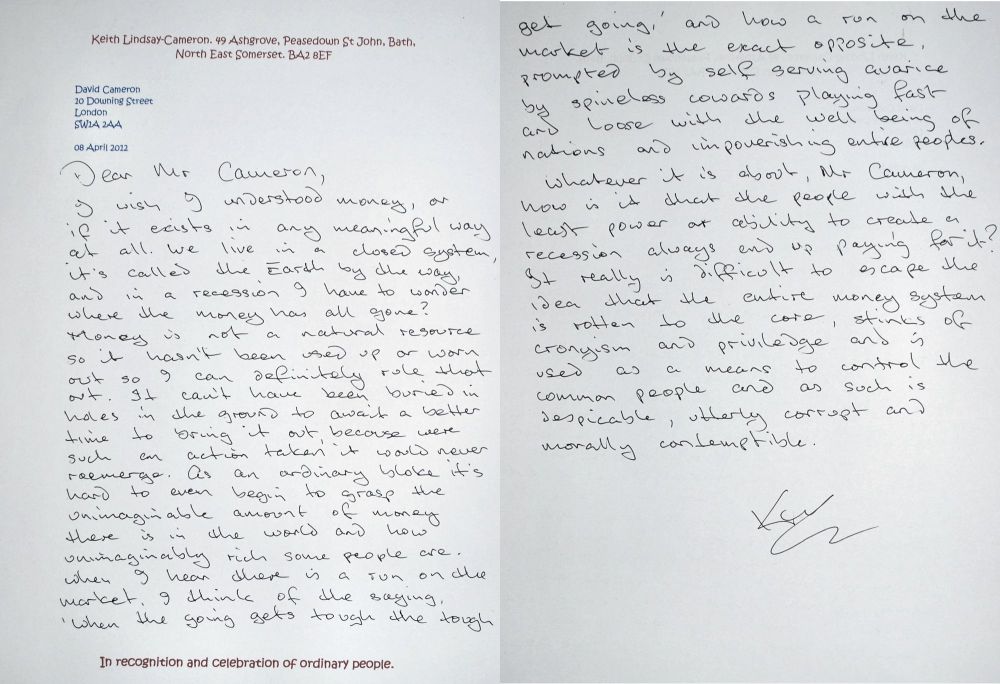 Keith Lindsay-Cameron. 49 Ashgrove, Peasedown St John, Bath,
North East Somerset. BA2 8EF
David Cameron
10 Downing Street
London
SW1A 2AA
08 April 2012
Dear Mr Cameron,
I wish I understood money, or
if it exists in any meaningful way
at all. We live in a closed system,
it's called the Earth by the way,
and in a recession I have to wonder
where the money has all gone?
Money is not a natural resource
so it hasn't been used up or worn
out so I can definitely rule that
out. It can't have been buried in
holes in the ground to await a better
time to bring it out, because were
such an action taken it would never
reemerge. As an ordinary bloke it's
hard to even begin to grasp the
unimaginable amount of money
there is in the world and how
unimaginably rich some people are.
When I hear there is a run on the
market, I think of the saying,
'when the going gets tough the tough
In recognition and celebration of ordinary people.
get going,' and how a run on the
market is the exact opposite,
prompted by self serving avarice
by spineless cowards playing fast
and loose with the well being of
nations and impoverishing entire peoples.
Whatever it is about, Mr Cameron,
how is it that the people with the
least power or ability to create a
recession always end up paying for it?
It really is difficult to escape the
idea that the entire money system
is rotten to the core, stinks of
cronyism and priviledge and is
used as a means to control the
common people and as such is
despicable, utterly corrupt and
morally contemptible.